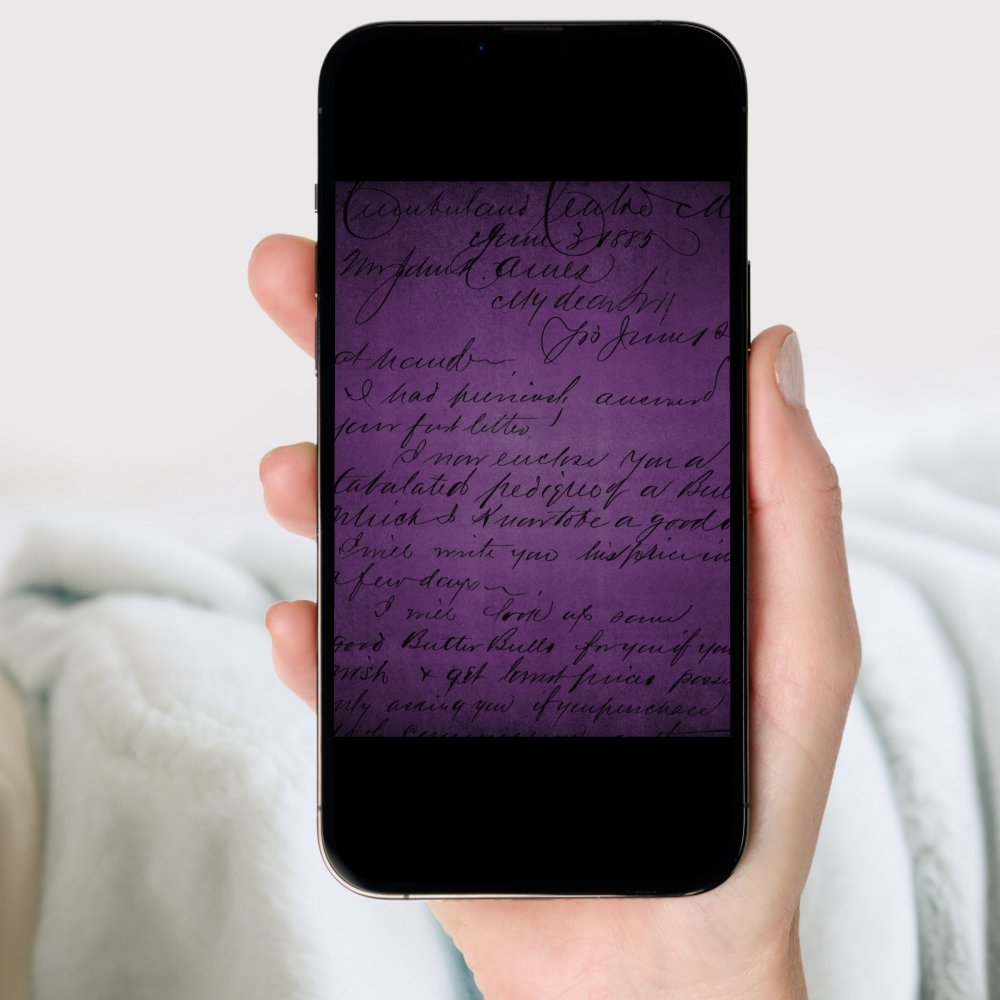 Cumberland Centre M
June 3 1885
Mr John A. Ames
My dear Sir
at hand
I had previously answered
your first letter
I now enclose you a
tabulated pedigree of a Bull
which I know to be a good
I will write you his price in
a few days
I will look up some
good Butter Bulls for you if you
wish & get lowest prices
only asking you if you purchase